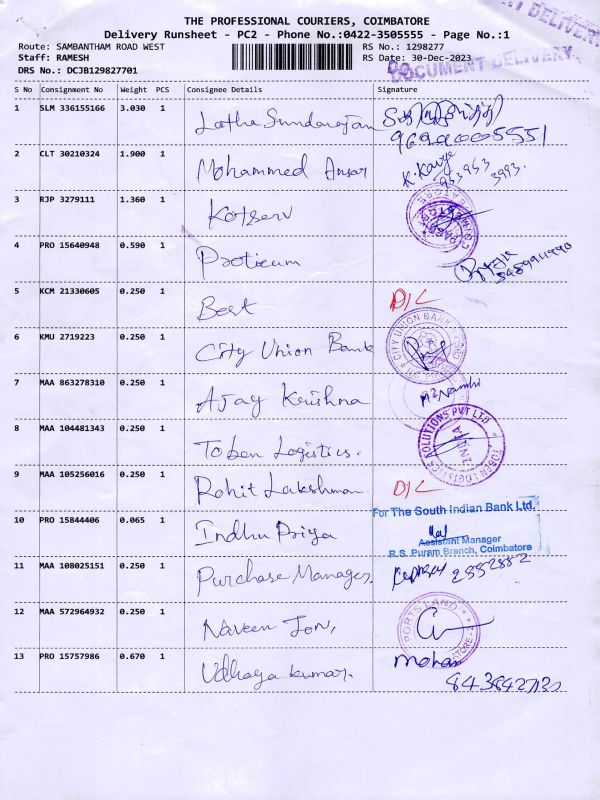 THE PROFESSIONAL COURIERS, COIMBATORE
Delivery Runsheet - PC2 - Phone No.:0422-3505555 - Page No.:1
DELIVERY
Route: SAMBANTHAM ROAD WEST
RS No.: 1298277
Staff: RAMESH
RS Date: 30-Dec-2023
DRS No.: DCJB129827701
DOCUMENT DELIVERY
S No Consignment No Weight PCS Consignee Details Signature
1 SLM 336155166 3.030 1 Latha Sundarajan
2 CLT 30210324 1.900 1 Mohammed Ansar K. Kavya
3993.
3 RJP 3279111 1.360 1 Kotserv
4 PRO 15640948 0.590 1 Proticum
5 KCM 21330605 0.250 1 Best D/L
6 KMU 2719223 0.250 1 City Union Bank
CITY UNION BANK
7 MAA 863278310 0.250 1 Ajay Krishna
8 MAA 104481343 0.250 1 Toben Logistics.
TOBEN LOGISTICS SOLUTIONS PVT LTD
9 MAA 105256016 0.250 1 Rohit Lakshman D/L
10 PRO 15844406 0.065 1 Indhu Priya
For The South Indian Bank Ltd.
Assistant Manager
R.S. Puram Branch, Coimbatore
11 MAA 108025151 0.250 1 Purchase Manager 2552552
12 MAA 572964932 0.250 1 Naveen Jon,
PORTSLAND
13 PRO 15757986 0.670 1 Udhaya kumar. mohan